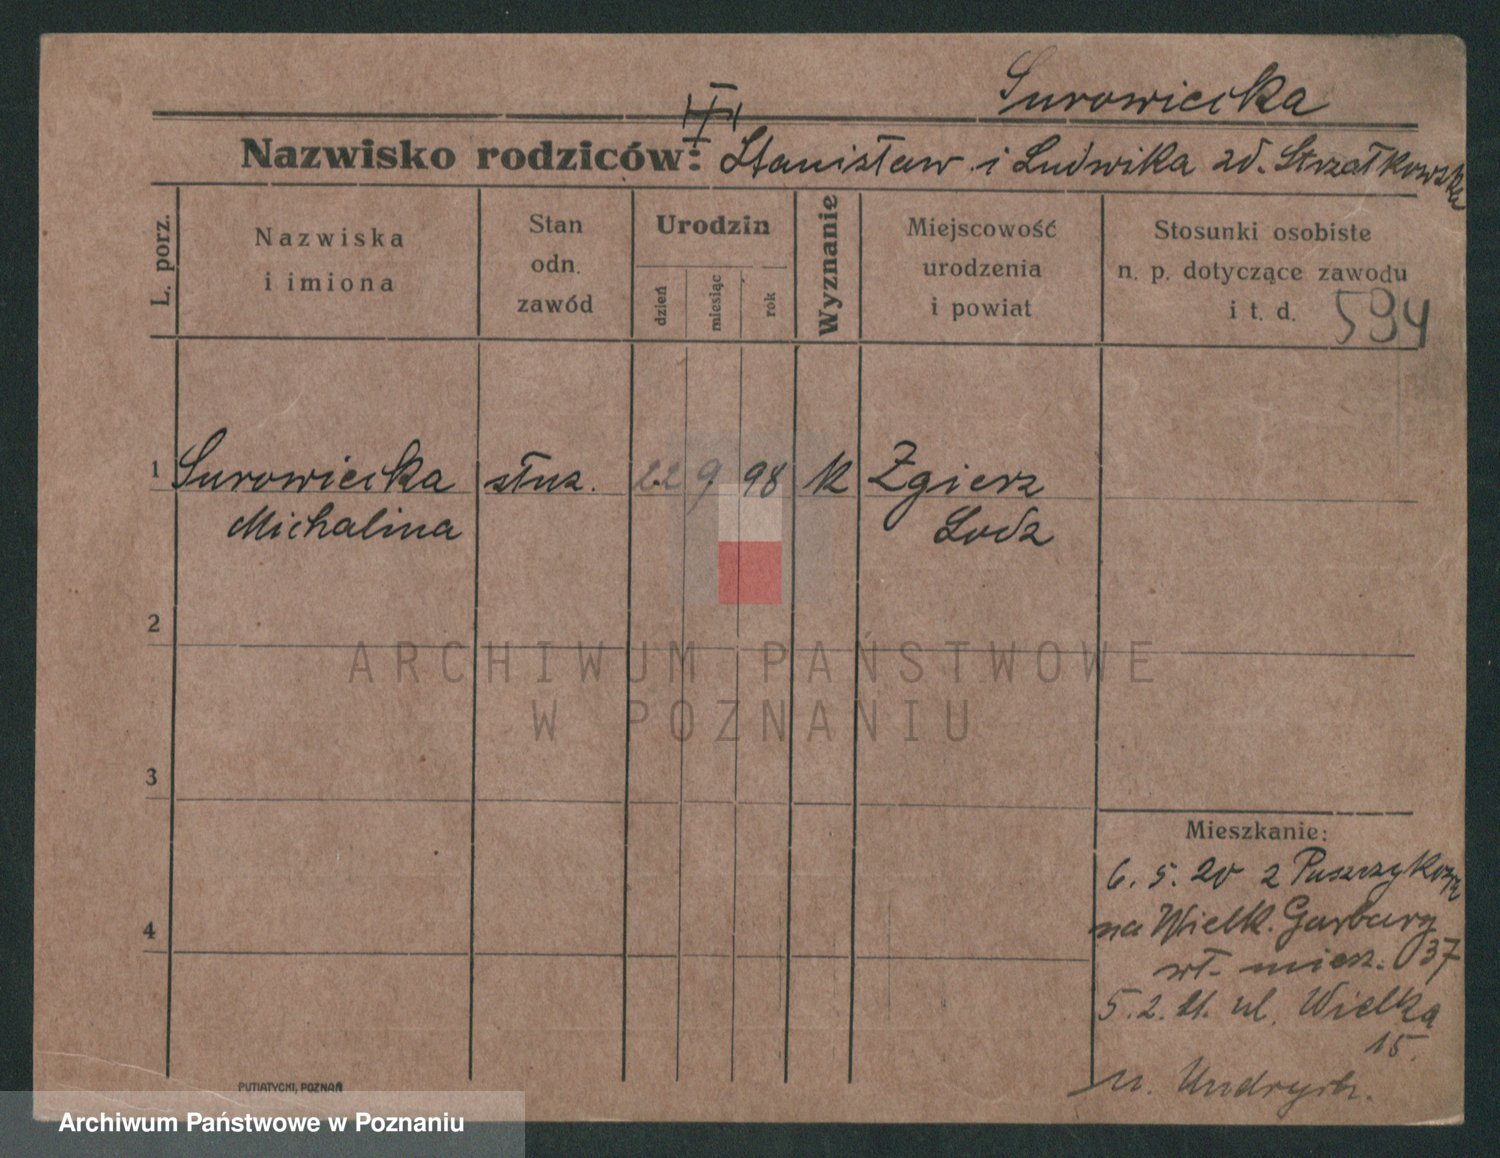 Surowiecka
II
Nazwisko rodziców: Stanisław i Ludwika zd. Strzałkowska
L. porz.
Nazwiska
i imiona
Stan
odn.
zawód
Urodzin
dzień
miesiąc
rok
Wyznanie
Miejscowość
urodzenia
i powiat
Stosunki osobiste
n. p. dotyczące zawodu
i t. d.
594
1 Surowiecka słuz. 22 9 98 k Zgierz
Michalina Lodz
2
3
4
Mieszkanie:
6. 5. 20 z Puszczykowa
na Wielk. Garbary
wł. miesz. 37
5. 2. 21. ul. Wielka
15.
u.
PUTIATYCKI, POZNAŃ
ARCHIWUM PAŃSTWOWE
W POZNANIU
Archiwum Państwowe w Poznaniu